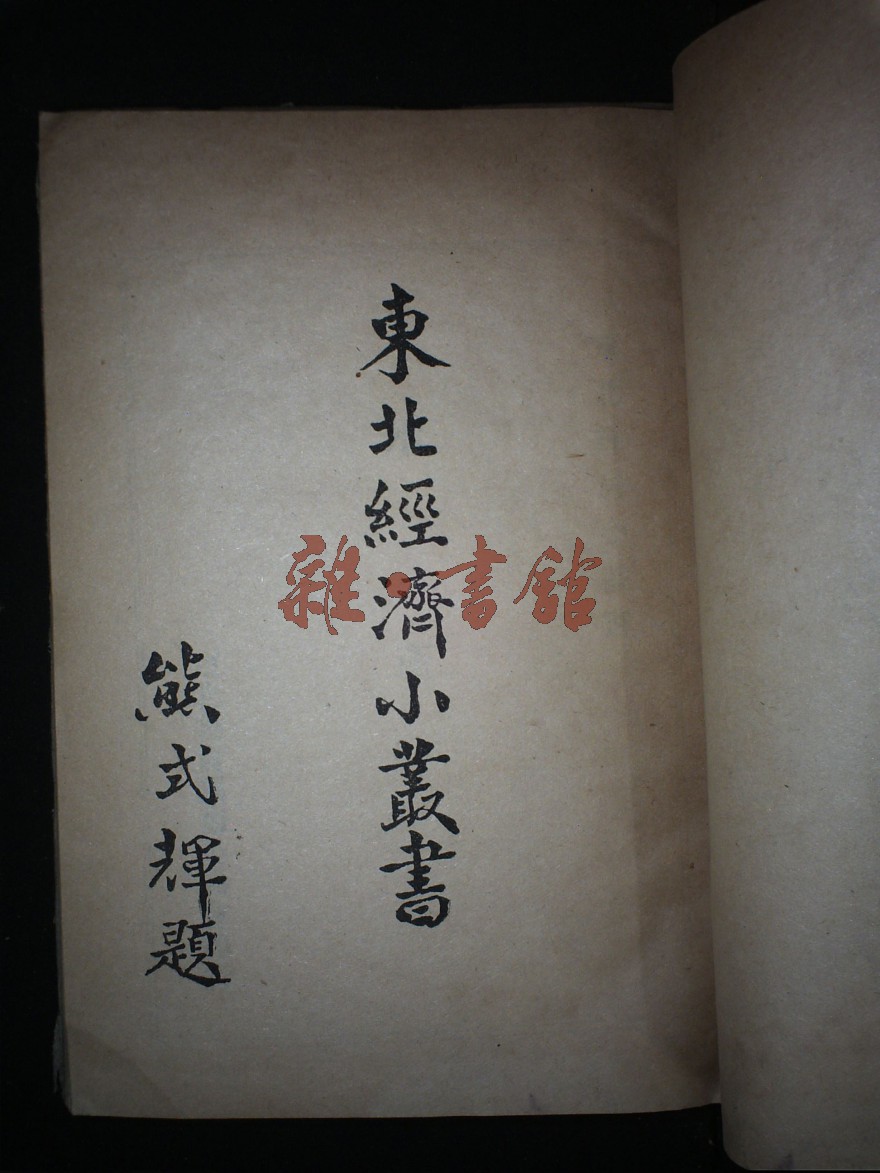 東北經濟小叢書
熊式輝題
雜·書館